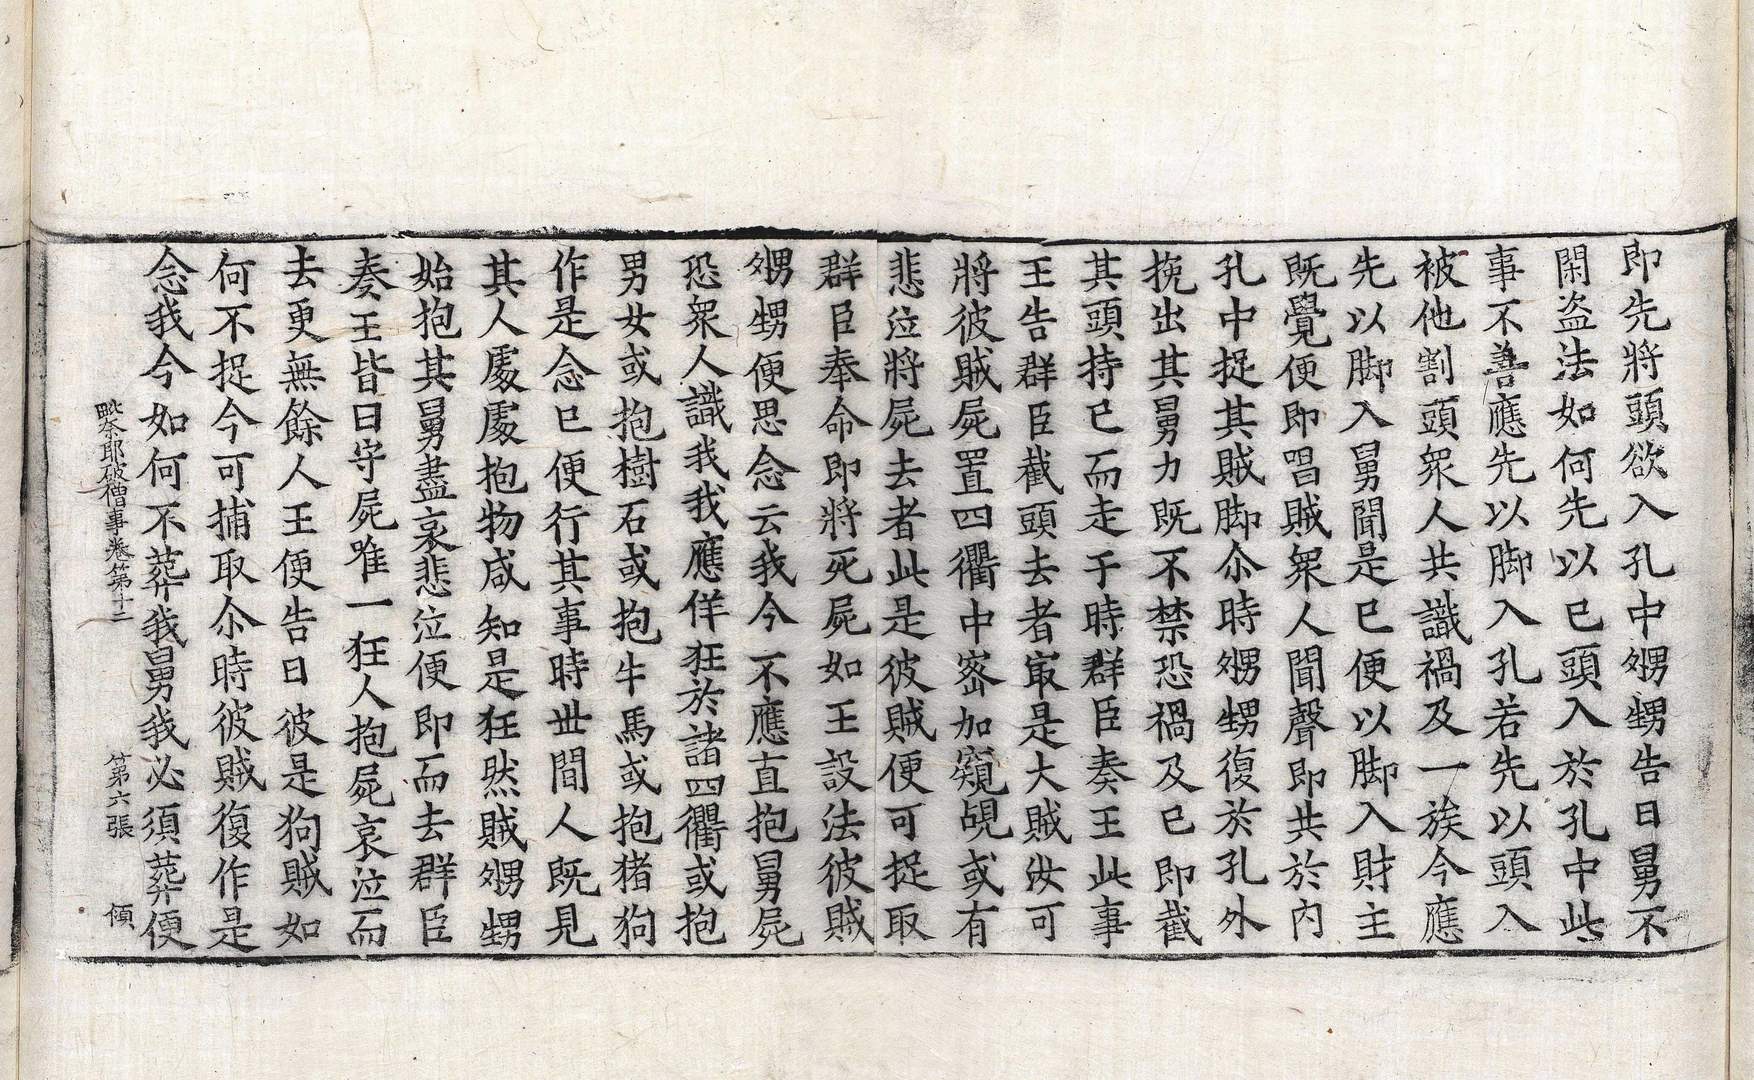 即先將頭欲入孔中甥甥告曰舅不
閑盜法如何先以已頭入於孔中此
事不善應先以脚入孔若先以頭入
被他割頭衆人共識禍及一族今應
先以脚入舅聞是已便以脚入財主
既覺便即唱賊衆人聞聲即共於内
孔中捉其賊脚尒時甥甥復於孔外
挽出其舅力既不禁恐禍及已即截
其頭持已而走于時群臣奏王此事
王告群臣截頭去者㝡是大賊汝可
將彼賊屍置四衢中密加窺覘或有
悲泣將屍去者此是彼賊便可捉取
群臣奉命即將死屍如王設法彼賊
甥甥便思念云我今不應直抱舅屍
恐衆人識我我應佯狂於諸四衢或抱
男女或抱樹石或抱牛馬或抱猪狗
作是念已便行其事時世間人既見
其人處處抱物咸知是狂然賊甥甥
始抱其舅盡哀悲泣便即而去群臣
奏王皆曰守屍唯一狂人抱屍哀泣而
去更無餘人王便告曰彼是狗賊如
何不捉今可捕取尒時彼賊復作是
念我今如何不葬我舅我必須葬便
毗奈耶破僧事卷第十二 第六張 傾